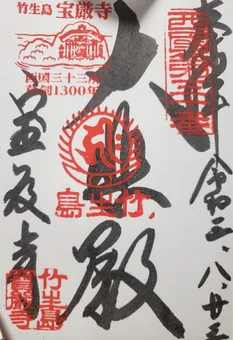 竹生島 宝厳寺
西国三十三所
草創1300年
西国第三十番
奉拝 令和三、八、廿三
大悲殿
竹生島
宝厳寺
竹生島